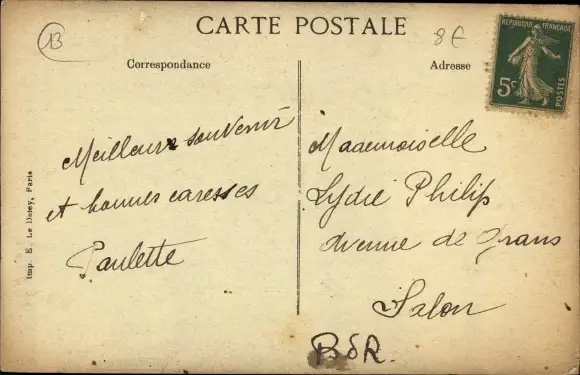 13
CARTE POSTALE
8€
RÉPUBLIQUE FRANÇAISE
5c
POSTES
Correspondance
Adresse
Meilleurs souvenir
et bonnes caresses
Paulette
Mademoiselle
Lydie Philip
Avenue de Grans
Salon
BdR.
Imp. E. Le Deley, Paris